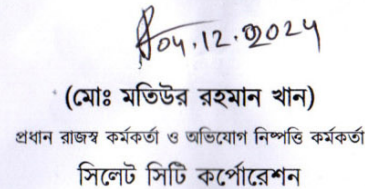 04.12.2024
(মোঃ মতিউর রহমান খান)
প্রধান রাজস্ব কর্মকর্তা ও অভিযোগ নিষ্পত্তি কর্মকর্তা
সিলেট সিটি কর্পোরেশন